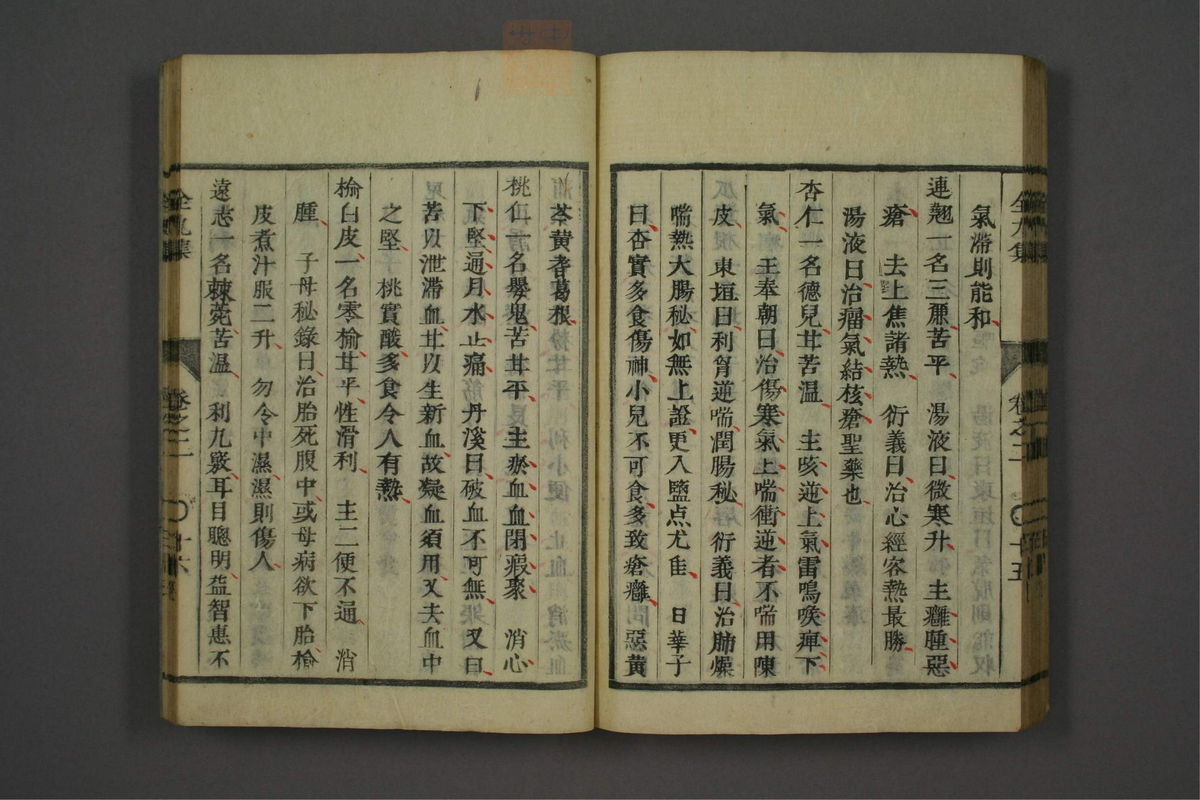 氣滯則能和
連翹一名三廉苦平 湯液曰微寒升 主癰腫惡
瘡 去上焦諸熱 衍義曰治心經客熱最勝
湯液曰治瘤氣結核瘡聖藥也
杏仁一名德兒甘苦温 主咳逆上氣雷鳴喉痺下
氣 王奉朝曰治傷寒氣上喘衝逆者不喘用陳
皮 東垣曰利胷逆喘潤腸秘 衍義曰治肺燥
喘熱大腸秘如無上證更入鹽点尤佳 日華子
曰杏實多食傷神小兒不可食多致瘡癰 惡黄
全九集 卷之二 〇十五
芩黄耆葛根
桃仁一名梟鬼苦甘平 主瘀血血閉瘕聚 消心
下堅通月水止痛 丹溪曰破血不可無 又曰
苦以泄滯血甘以生新血故凝血須用又夫血中
之堅 桃實酸多食令人有熱
榆白皮一名零榆甘平性滑利 主二便不通 消
腫 子母秘錄曰治胎死腹中或母病欲下胎榆
皮煮汁服二升 勿令中濕濕則傷人
遠志一名棘菀苦温 利九竅耳目聰明益智惠不
全九集 卷之二 〇十六